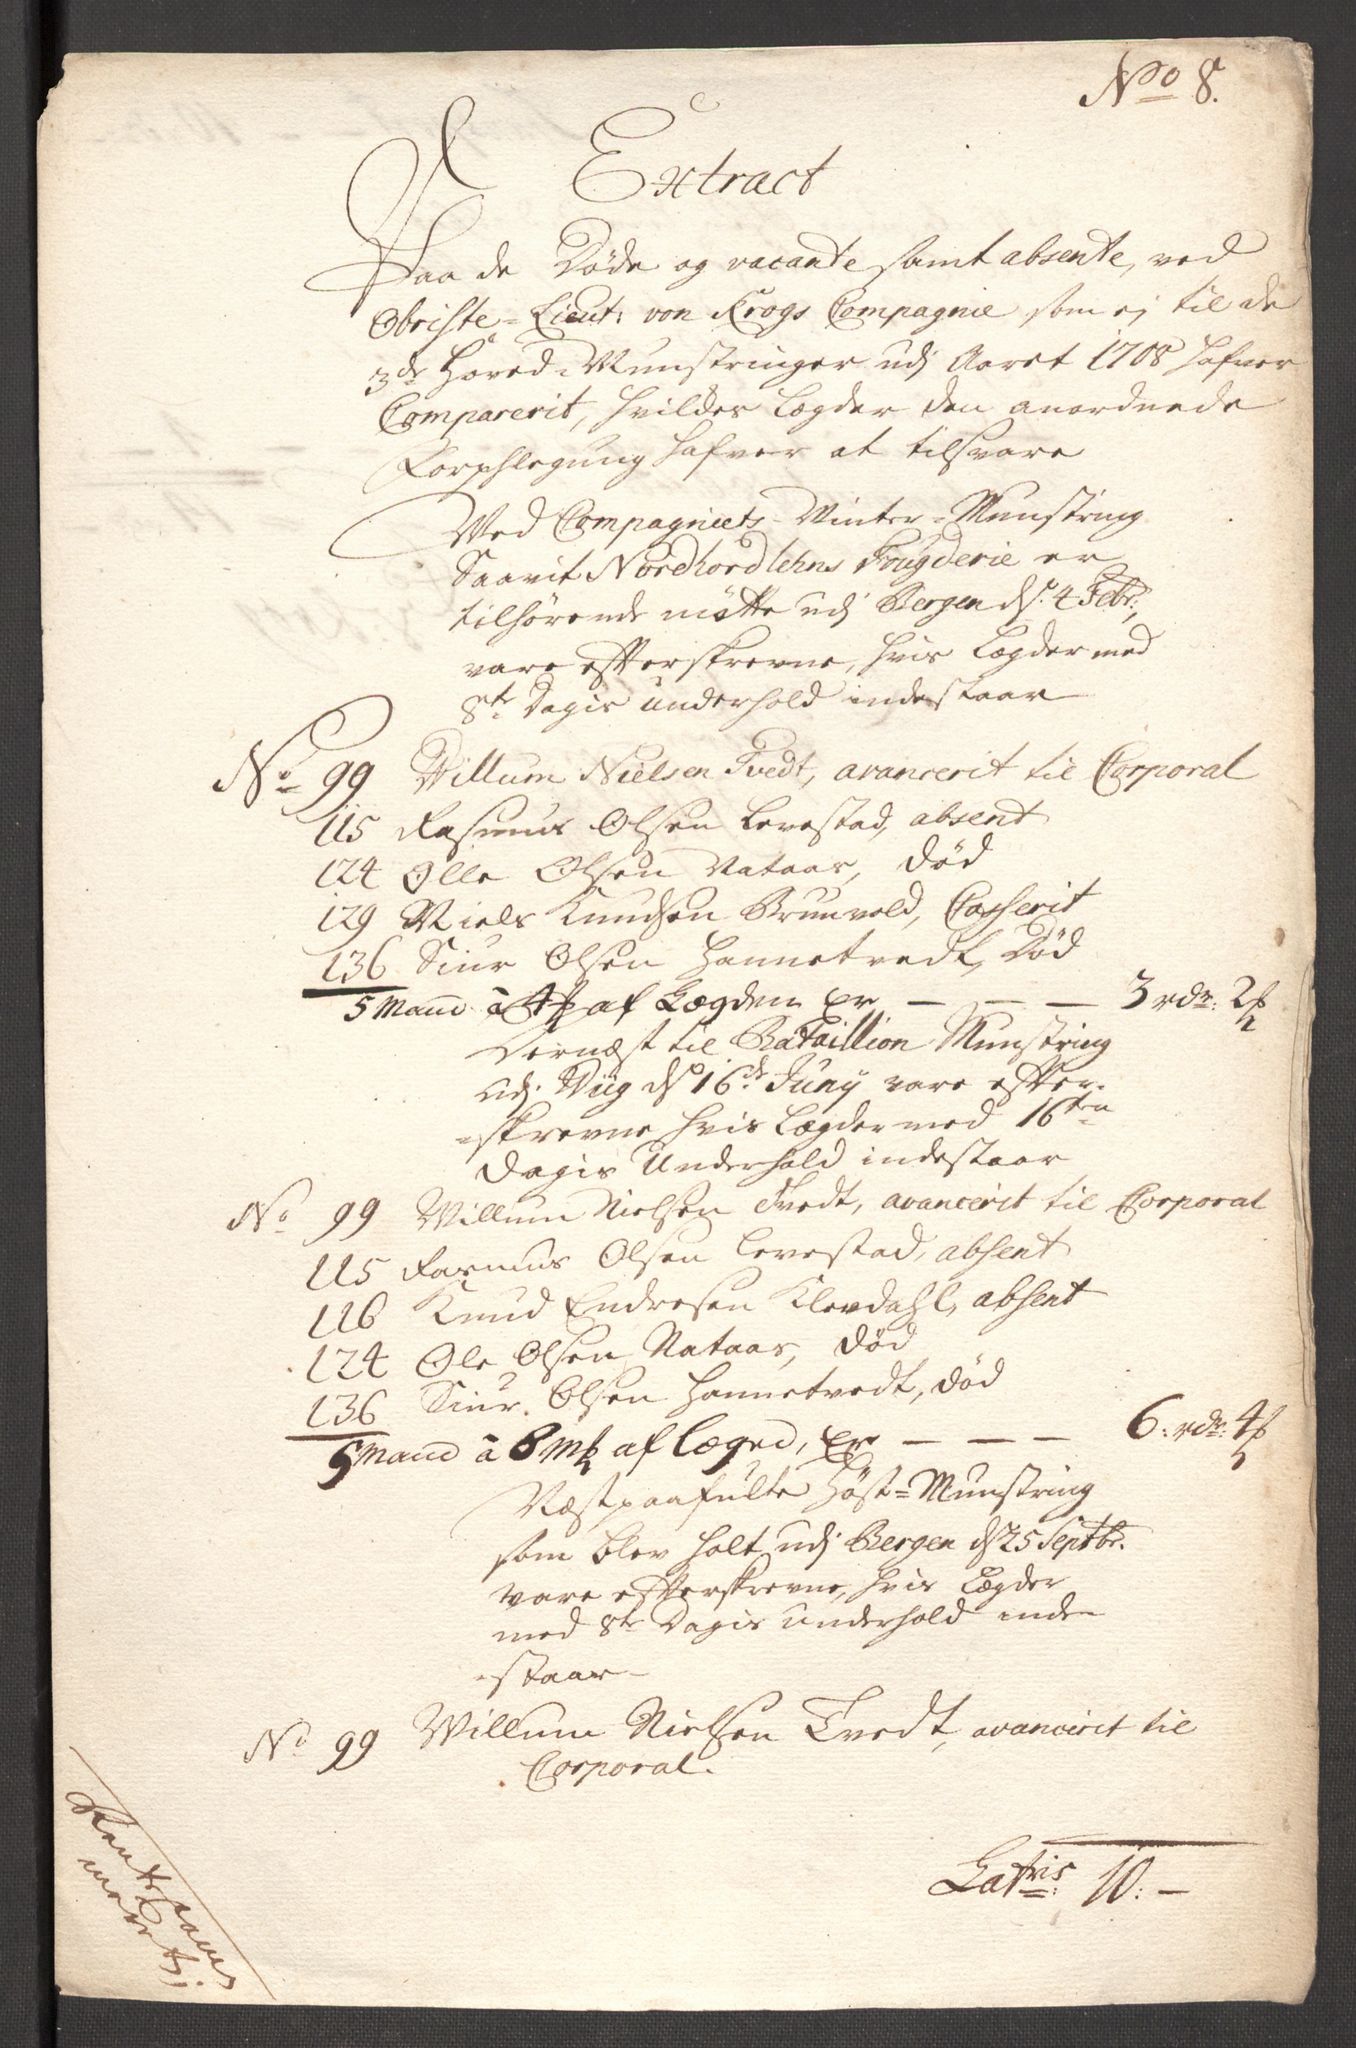 No 8.
Extract
Paa de Døde og vacante samt absente, ved
Obriste-Lieut: von Krogs Compagnie som ej til de
3de Hoved-Munstringer udj Aaret 1708 hafver
Comparerit, hvildes Lægder den anordnede
Forphlegung hafver at tilsvare
Ved Compagniets Winter-Munstring
Saavit Nordhordlehns Fougderie er
tilhørende møtte udj Bergen ds. 4 Febr:,
vare efterskrevne, hvis Lægder med
8te Dagis underhold indestaar
No 99 Willum Nielsen Tvedt, avancerit til Corporal
115 Rasmus Olsen Levestad, absent
124 Olle Olsen Nataas, død
129 Niels Knudsen Brunvold, Casserit
136 Siur Olsen Hannetvedt, Død
5 Mand à 4 af Lægden er — — — 3 rdr: 2
Dernæst til Bataillion Munstring
udj Wiig ds 16de Juny vare efter-
skrevne hvis Lægder med 16ten
Dagis Underhold indestaar
No 99 Willum Nielsen Tvedt, avancerit til Corporal
115 Rasmus Olsen Levestad, absent
116 Knud Endresen Klevdahl, absent
124 Ole Olsen Nataas, død
136 Siur Olsen Hannetvedt, død
5 Mand à 8 mk af Læged, er — — — 6: rdr: 4
Næstpaafulte Høst=Munstring
som blev holt udj Bergen ds 25 Septbr.
vare efterskrevne, hvis Lægder
med 8te Dagis underhold inde
-staar
No 99 Willum Nielsen Tvedt, avancerit til
Corporal.
Latris 10: —